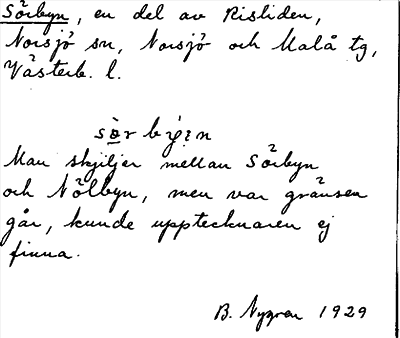 Sörbyn, en del av Risliden,
Norsjö sn, Norsjö och Malå tg,
Västerb. l.
Man skiljer mellan Sörbyn
och Nölbyn, men var gränsen
går, kunde upptecknaren ej
finna.
B. Nygren 1929